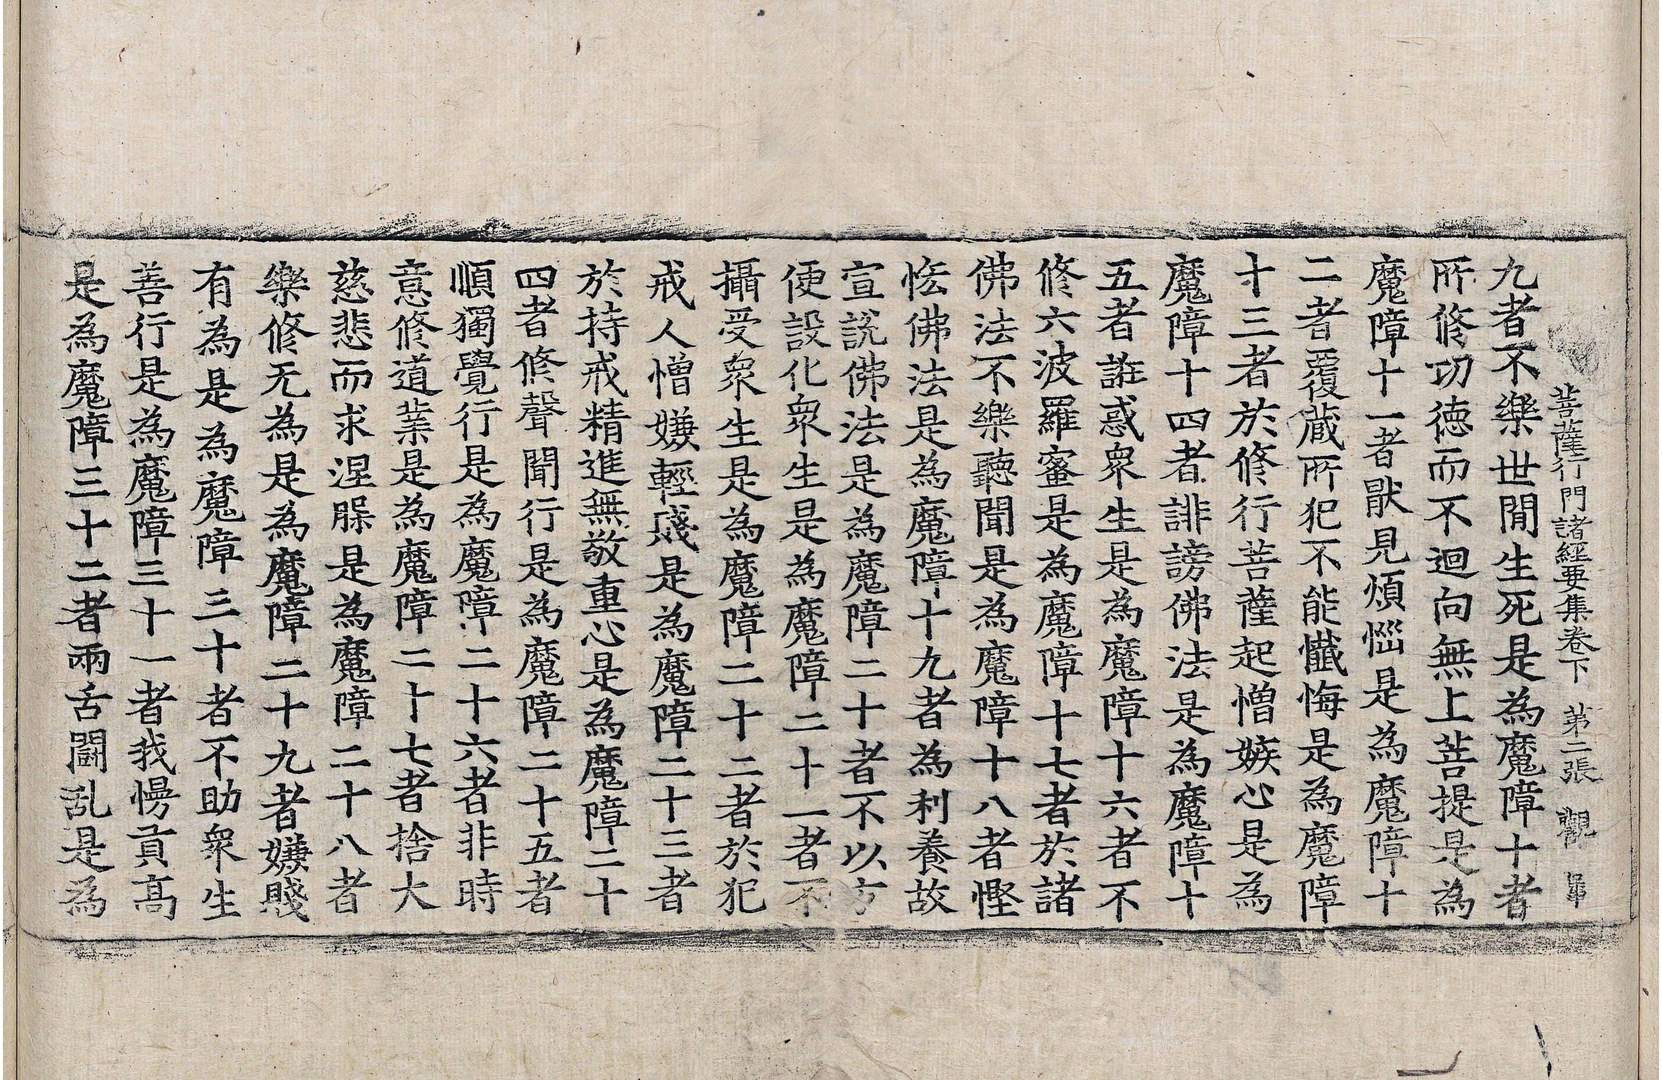 菩薩行門諸經要集卷下 第二張 觀
九者不樂世閒生死是為魔障十者
所修功德而不迴向無上菩提是為
魔障十一者猒見煩惱是為魔障十
二者覆藏所犯不能懺悔是為魔障
十三者於修行菩薩起憎嫉心是為
魔障十四者誹謗佛法是為魔障十
五者誑惑衆生是為魔障十六者不
修六波羅蜜是為魔障十七者於諸
佛法不樂聽聞是為魔障十八者慳
悋佛法是為魔障十九者為利養故
宣說佛法是為魔障二十者不以方
便設化衆生是為魔障二十一者不
攝受衆生是為魔障二十二者於犯
戒人憎嫌輕賤是為魔障二十三者
於持戒精進無敬重心是為魔障二十
四者修聲聞行是為魔障二十五者
順獨覺行是為魔障二十六者非時
意修道業是為魔障二十七者捨大
慈悲而求涅槃是為魔障二十八者
樂修无為是為魔障二十九者嫌賤
有為是為魔障三十者不助衆生
善行是為魔障三十一者我慢貢高
是為魔障三十二者兩舌鬪乱是為